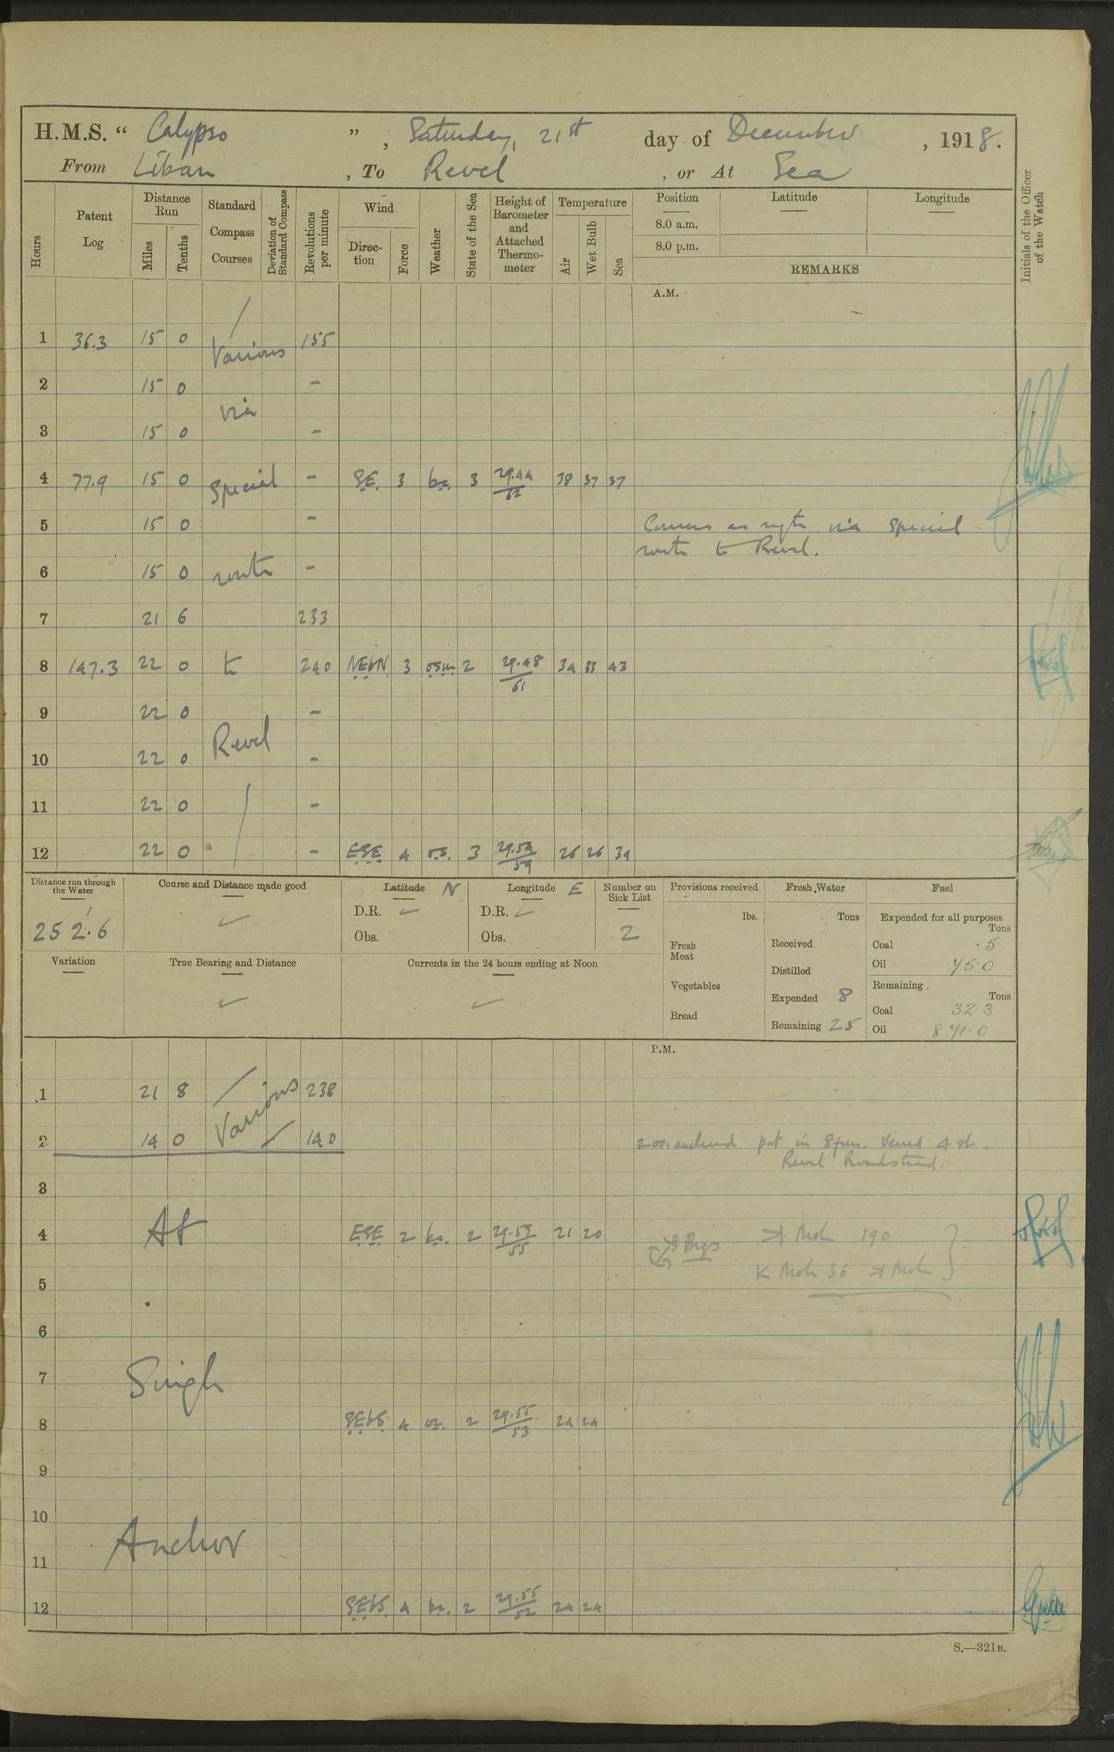 H.M.S. " Calypso ", Saturday, 21st day of December, 1918.
From Libau, To Revel, or At Sea
Hours Patent Log Distance Run Miles Tenths Standard Compass Courses Deviation of Standard Compass Revolutions per minute Wind Direction Force Weather State of the Sea Height of Barometer and Attached Thermometer Temperature Air Wet Bulb Sea Position Latitude Longitude Initials of the Officer of the Watch
8.0 a.m.
8.0 p.m.
REMARKS
A.M.
1 36.3 15 0 Various 155
2 15 0 -
via
3 15 0 -
4 77.9 15 0 Special - SE. 3 bc. 3 29.44/62 38 37 37
5 15 0 - Courses as reqte via special
route to Revel.
6 15 0 route -
7 21 6 233
8 147.3 22 0 to 240 NEbN 3 osm 2 29.48/61 34 33 43
9 22 0 -
Revel
10 22 0 -
11 22 0 -
12 22 0 - ESE 4 o.s. 3 29.52/59 26 26 39
Distance run through the Water Course and Distance made good Latitude N Longitude E Number on Sick List Provisions received Fresh Water Fuel
252.6 D.R. D.R. 2 lbs. Tons Expended for all purposes Tons
Obs. Obs. Fresh Meat Received Coal .5
Distilled Oil 75.0
Variation True Bearing and Distance Currents in the 24 hours ending at Noon Vegetables Expended 8 Remaining Tons
Bread Remaining 25 Coal 323
Oil 871.0
P.M.
1 21 8 Various 238
2 14 0 140 2.00 anchored port in 8 fm. Veered 4 sh.
Revel Roadstead.
3
4 At ESE 2 bc. 2 29.53/55 21 20 Bgs Moh 190
Moh 36 Moh
5
6
7 Single
8 SEbS 4 oc. 2 29.55/53 24 24
9
10
Anchor
11
12 SEbS 4 bc. 2 29.55/52 24 24
S.—321B.